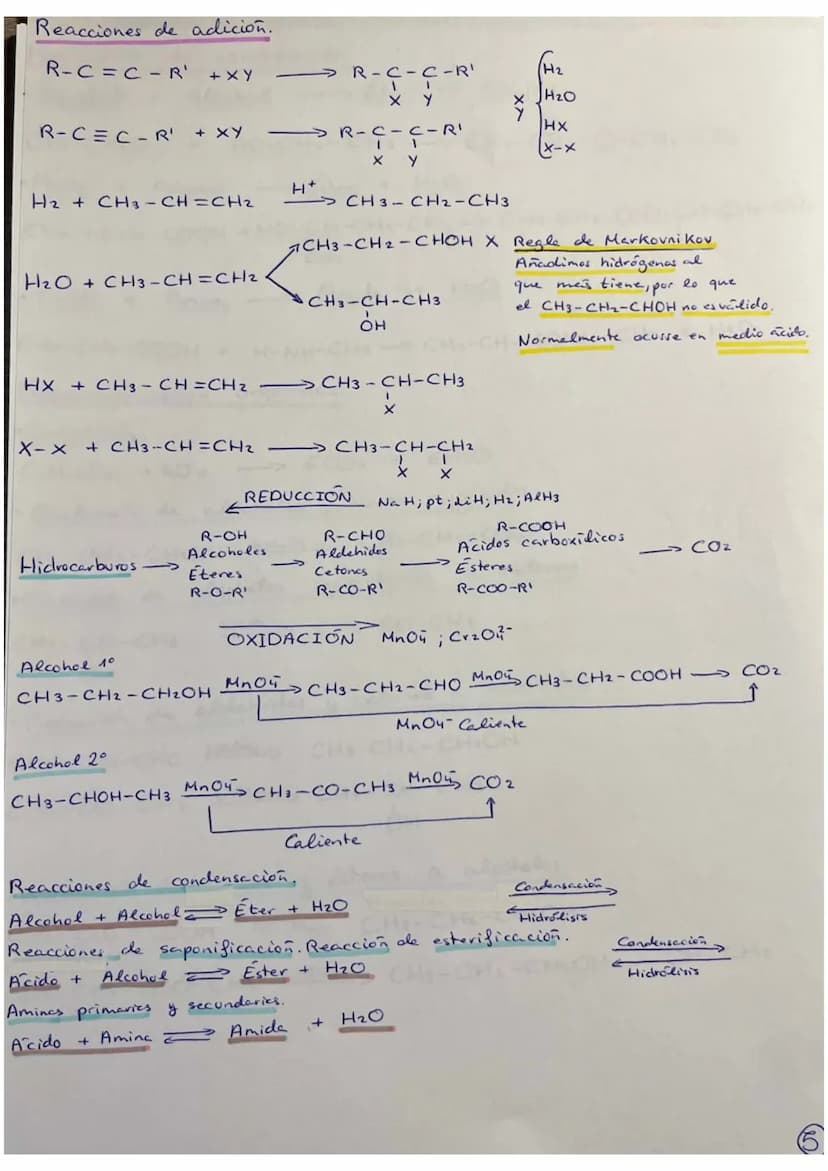 Reacciones de adición.
R-C=C-R' + XY ⟶ R-C-C-R'
X Y
X
Y
H2
H2O
HX
X-X
R-C≡C-R' + XY ⟶ R-C-C-R'
X Y
H2 + CH3-CH=CH2 H+⟶ CH3-CH2-CH3
H2O + CH3-CH=CH2
CH3-CH2-CHOH X
CH3-CH-CH3
OH
Regla de Markovnikov
Añadimos hidrógenos al
que más tiene, por lo que
el CH3-CH2-CHOH no es válido.
Normalmente ocurre en medio ácido.
HX + CH3-CH=CH2 ⟶ CH3-CH-CH3
X
X-X + CH3-CH=CH2 ⟶ CH3-CH-CH2
X X
REDUCCIÓN NaH; pt; LiH; H2; AlH3
R-OH R-CHO R-COOH
Alcoholes Aldehidos Ácidos carboxílicos
Hidrocarburos ⟶ ⟶ ⟶ ⟶ CO2
Éteres Cetonas Ésteres
R-O-R' R-CO-R' R-COO-R'
OXIDACIÓN MnO4-; Cr2O4 2-
Alcohol 1º
CH3-CH2-CH2OH MnO4-⟶ CH3-CH2-CHO MnO4-⟶ CH3-CH2-COOH ⟶ CO2
MnO4- Caliente
Alcohol 2º
CH3-CHOH-CH3 MnO4-⟶ CH3-CO-CH3 MnO4-⟶ CO2
Caliente
Reacciones de condensación.
Alcohol + Alcohol ⇌ Éter + H2O
Condensación
Hidrólisis
Reacciones de saponificación. Reacción de esterificación.
Ácido + Alcohol ⇌ Éster + H2O
Condensación
Hidrólisis
Aminas primarias y secundarias.
Ácido + Amina ⇌ Amida + H2O
5